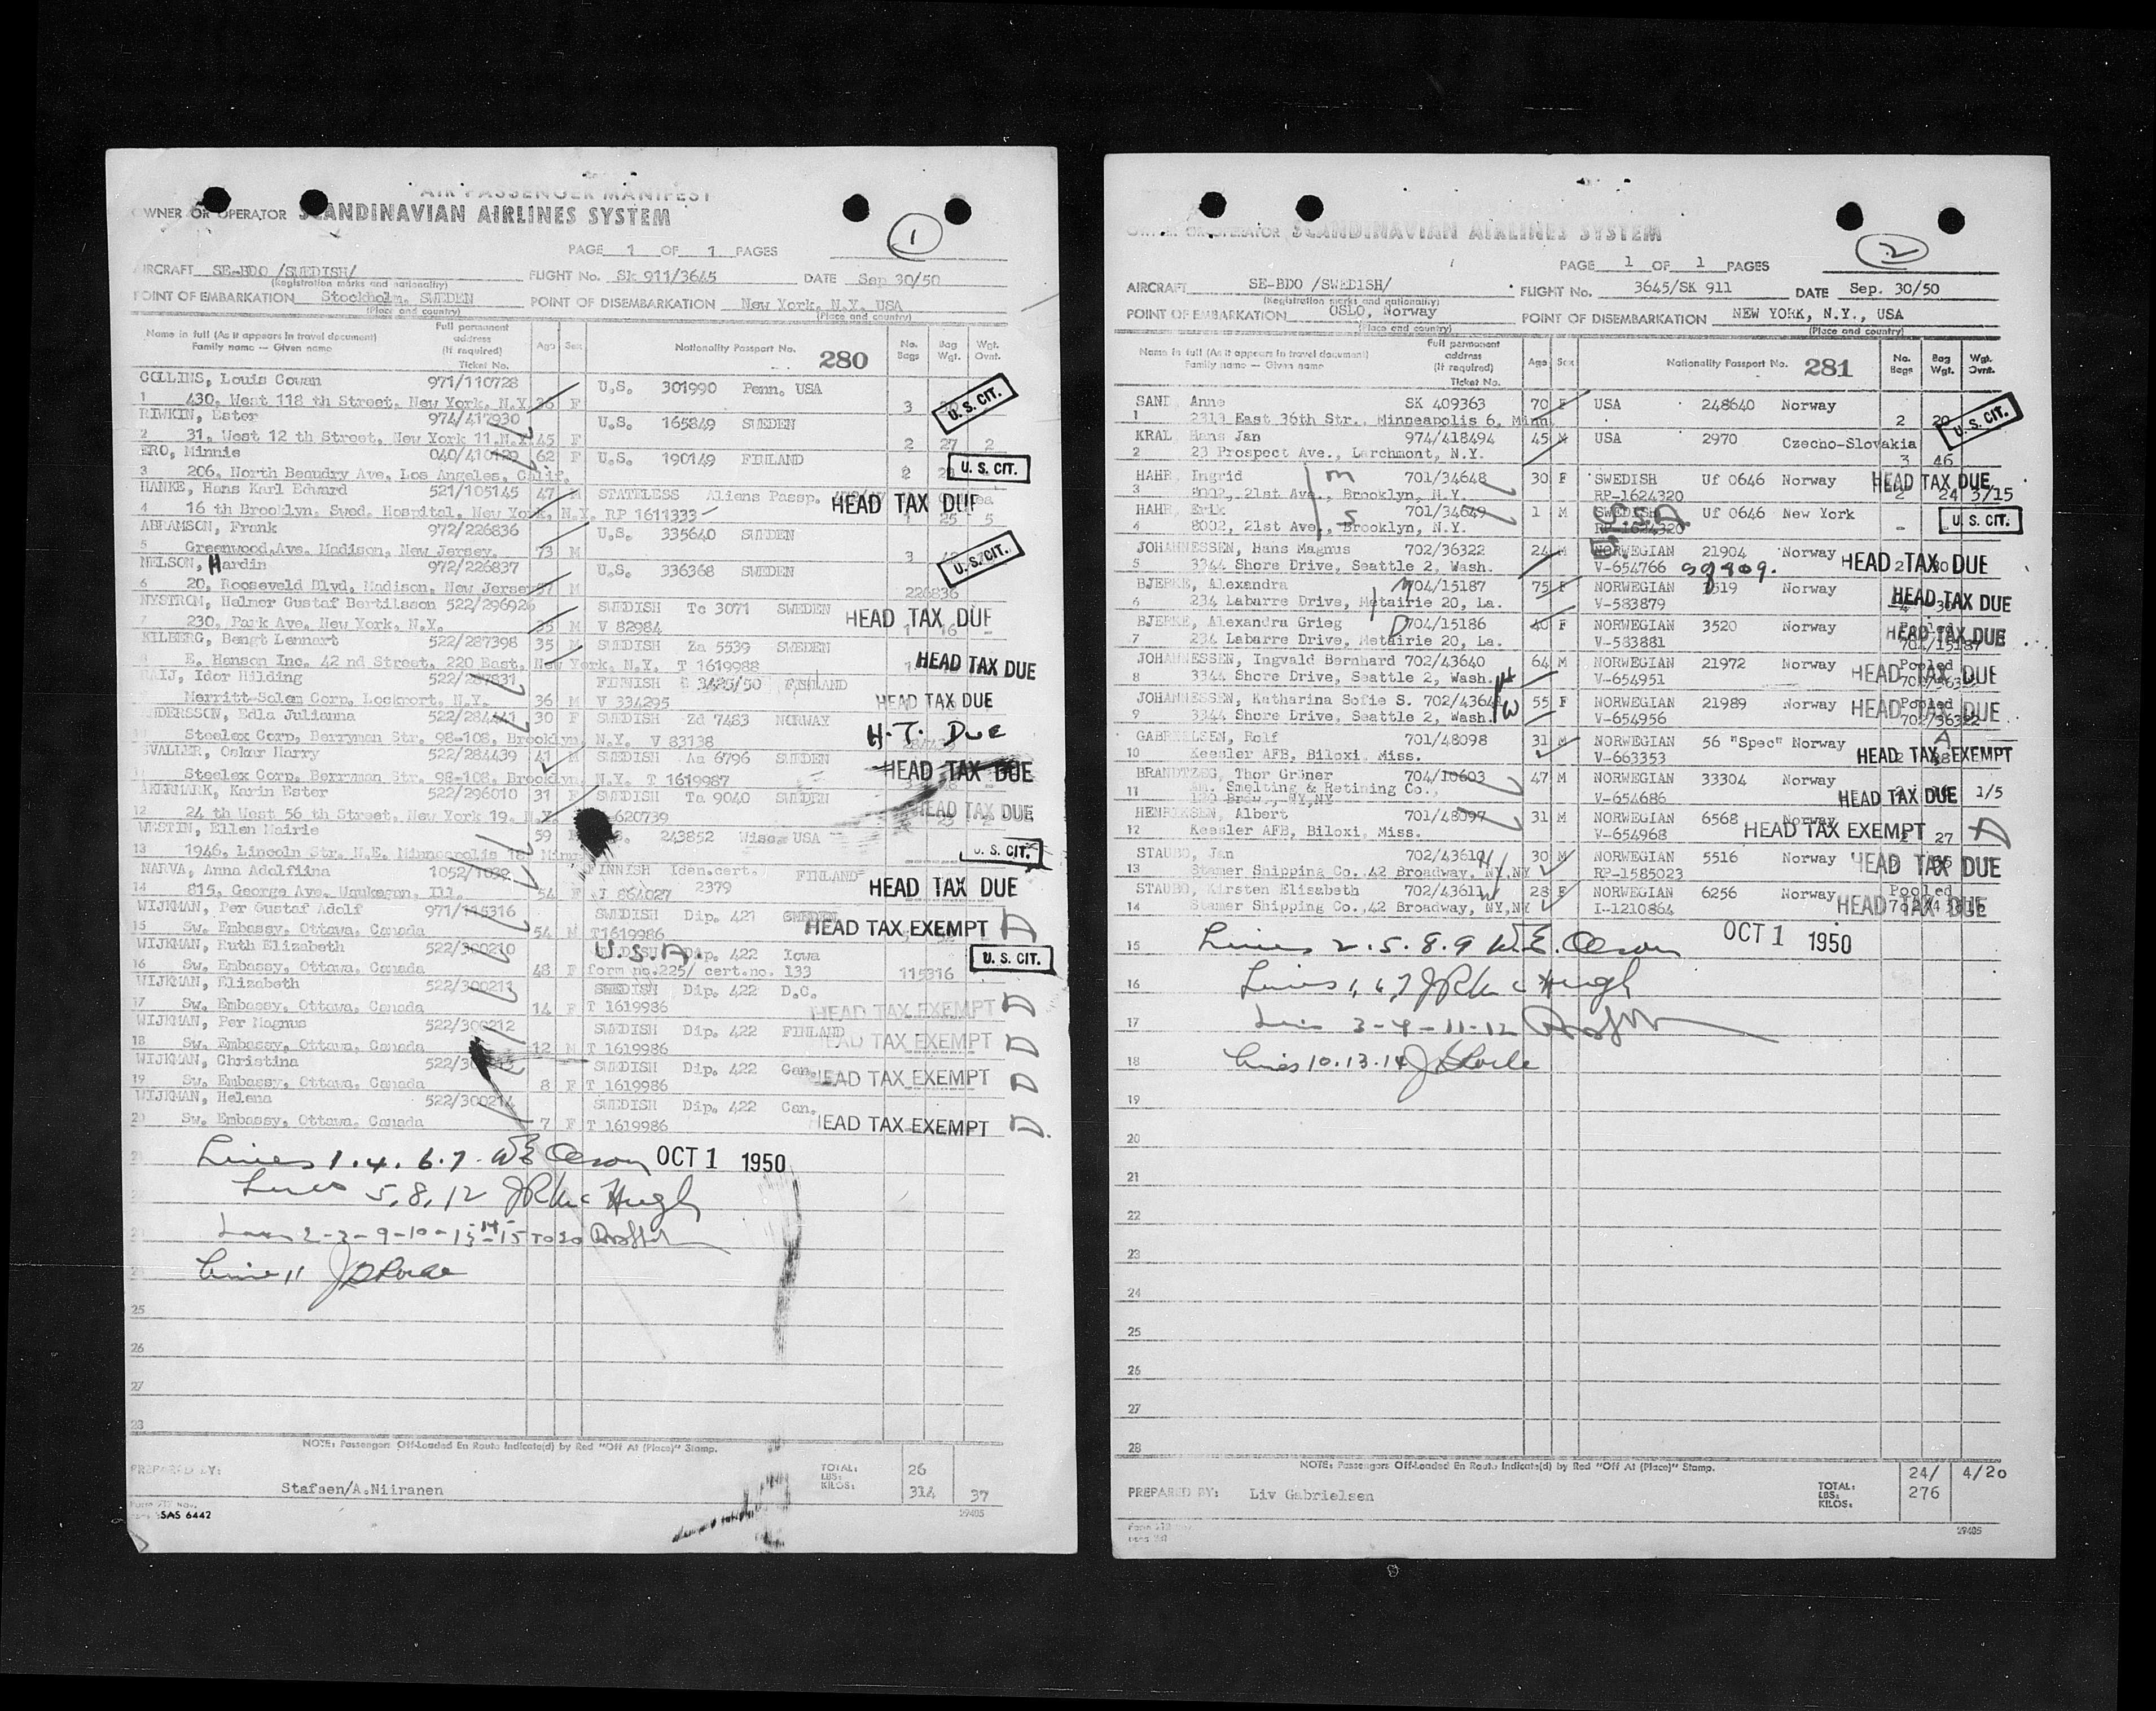 AIR PASSENGER MANIFEST
OWNER OR OPERATOR SCANDINAVIAN AIRLINES SYSTEM
1
PAGE 1 OF 1 PAGES
AIRCRAFT SE-BDO /SWEDISH/ FLIGHT No. SK 911/3645 DATE Sep 30/50
(Registration marks and nationality)
POINT OF EMBARKATION Stockholm, SWEDEN POINT OF DISEMBARKATION New York, N.Y. USA
(Place and country) (Place and country)
Name in full (As it appears in travel document) Family name — Given name
Full permanent address (If required) Ticket No.
Age Sex Nationality Passport No. 280 No. Bags Bag Wgt. Wgt. Ovnt.
COLLINS, Louis Cowan 971/110728 U.S. 301990 Penn. USA
1 430, West 118 th Street, New York, N.Y. 36 F 3 U.S. CIT.
RIWKIN, Ester 974/417930 U.S. 165849 SWEDEN
2 31, West 12 th Street, New York 11.N.Y. 45 F 2 27 2
ERO, Minnie 62 F U.S. 190149 FINLAND
3 206, North Beaudry Ave, Los Angeles, Calif. 2 U.S. CIT.
HANKE, Hans Karl Edward 521/105145 47 M STATELESS Aliens Passp. HEAD TAX DUE
4 16 th Brooklyn, Swed. Hospital, New York, N.Y. RP 1611333 1 25 5
ABRAMSON, Frank 972/226836 U.S. 335640 SWEDEN
5 Greenwood,Ave. Madison, New Jersey. 73 M 3 U.S. CIT.
NELSON, Hardin 972/226837 U.S. 336368 SWEDEN
6 20, Rooseveld Blvd, Madison, New Jersey 57 M 226836
NYSTROM, Helmer Gustaf Bertilsson 522/296926 SWEDISH Tc 3071 SWEDEN HEAD TAX DUE
7 230, Park Ave, New York, N.Y. M V 82984 1 16 -
KILBERG, Bengt Lennart 522/287398 35 M SWEDISH Za 5539 SWEDEN
8 E. Hanson Inc. 42 nd Street, 220 East, New York, N.Y. T 1619988 HEAD TAX DUE
Idor Hilding FINNISH 3425/50 FINLAND
Merritt-Salen Corp, Lockport, N.Y. 36 M V 334295 HEAD TAX DUE
ANDERSSON, Edla Julianna 30 F SWEDISH Zd 7483 NORWAY
10 Steelex Corp, Berryman Str. 98-108, Brooklyn, N.Y. V 83138 H.T. Due
SVALLER, Oskar Harry 522/284439 41 M SWEDISH Aa 6796 SWEDEN HEAD TAX DUE
11 Steelex Corp, Berryman Str. 98-108, Brooklyn, N.Y. T 1619987
AKERMARK, Karin Ester 522/296010 31 F SWEDISH Ta 9040 SWEDEN
12 24 th West 56 th Street, New York 19. N.Y. 620739 HEAD TAX DUE
WESTIN, Ellen Mairie 59 243852 Wisc. USA
13 1946, Lincoln Str. N.E. Minneapolis 18 Minn. U.S. CIT.
NARVA, Anna Adolfiina 1052/1032 FINNISH Iden.cert. FINLAND
14 815, George Ave. Waukegan, Ill. 54 F 864027 2379 HEAD TAX DUE
WIJKMAN, Per Gustaf Adolf 971/115316 SWEDISH Dip. 421 SWEDEN
15 Sw. Embassy, Ottawa, Canada 54 M T1619986 HEAD TAX EXEMPT
WIJKMAN, Ruth Elizabeth 522/300210 U.S.A. SWEDISH Dip. 422 Iowa
16 Sw. Embassy, Ottawa, Canada 48 F form no.225/ cert.no. 133 115316 U.S. CIT.
WIJKMAN, Elizabeth 522/300211 SWEDISH Dip. 422 D.C.
17 Sw. Embassy, Ottawa, Canada 14 F T 1619986 HEAD TAX EXEMPT D
WIJKMAN, Per Magnus 522/300212 SWEDISH Dip. 422 FINLAND
18 Sw. Embassy, Ottawa, Canada 12 M T 1619986 HEAD TAX EXEMPT D
WIJKMAN, Christina SWEDISH Dip. 422 Can.
19 Sw. Embassy, Ottawa, Canada 8 F T 1619986 HEAD TAX EXEMPT D
WIJKMAN, Helena 522/300214 SWEDISH Dip. 422 Can.
20 Sw. Embassy, Ottawa, Canada 7 F T 1619986 HEAD TAX EXEMPT D
Lines 1. 4. 6. 7. W E Olson OCT 1 1950
Lines 5, 8, 12 J R McHugh
Lines 2-3-9-10-13-14-15 TO 20
Line 11
25
26
27
28
NOTE: Passengers Off-Loaded En Route Indicate(d) by Red "Off At (Place)" Stamp.
PREPARED BY: Stafsen/A.Niiranen
TOTAL: 26
LBS:
KILOS: 314 37
SAS 6442 29405
OWNER OR OPERATOR SCANDINAVIAN AIRLINES SYSTEM
2
PAGE 1 OF 1 PAGES
AIRCRAFT SE-BDO /SWEDISH/ FLIGHT No. 3645/SK 911 DATE Sep. 30/50
(Registration marks and nationality)
POINT OF EMBARKATION OSLO, Norway POINT OF DISEMBARKATION NEW YORK, N.Y., USA
(Place and country) (Place and country)
Name in full (As it appears in travel document) Family name — Given name
Full permanent address (If required) Ticket No.
Age Sex Nationality Passport No. 281 No. Bags Bag Wgt. Wgt. Ovnt.
SAND, Anne SK 409363 70 F USA 248640 Norway
1 2313 East 36th Str., Minneapolis 6, Minn. 2 20 U.S. CIT.
KRAL, Hans Jan 974/418494 45 M USA 2970 Czecho-Slovakia
2 23 Prospect Ave., Larchmont, N.Y. 3 46
HAHR, Ingrid m 701/34648 30 F SWEDISH Uf 0646 Norway HEAD TAX DUE
3 8002, 21st Ave., Brooklyn, N.Y. RP-1624320 2 24 3/15
HAHR, Erik s 701/34649 1 M SWEDISH U.S.A. Uf 0646 New York
4 8002, 21st Ave., Brooklyn, N.Y. RP-1624320 - U.S. CIT.
JOHANNESSEN, Hans Magnus 702/36322 24 M NORWEGIAN 21904 Norway
5 3344 Shore Drive, Seattle 2, Wash. V-654766 HEAD TAX DUE
BJERKE, Alexandra 704/15187 75 F NORWEGIAN 1519 Norway
6 234 Labarre Drive, Metairie 20, La. V-583879 HEAD TAX DUE
BJERKE, Alexandra Grieg 704/15186 40 F NORWEGIAN 3520 Norway
7 234 Labarre Drive, Metairie 20, La. V-583881 HEAD TAX DUE 704/15187
JOHANNESSEN, Ingvald Bernhard 702/43640 64 M NORWEGIAN 21972 Norway Pooled
8 3344 Shore Drive, Seattle 2, Wash. H V-654951 HEAD TAX DUE
JOHANNESSEN, Katharina Sofie S. 702/43641 55 F NORWEGIAN 21989 Norway Pooled
9 3344 Shore Drive, Seattle 2, Wash. W V-654956 HEAD TAX DUE 702/36322
GABRIELSEN, Rolf 701/48098 31 M NORWEGIAN 56 "Spec" Norway A
10 Keesler AFB, Biloxi, Miss. V-663353 HEAD TAX EXEMPT
BRANDTZEG, Thor Gröner 704/10603 47 M NORWEGIAN 33304 Norway
11 Am. Smelting & Retining Co., 120 Brdw., NY,NY V-654686 HEAD TAX DUE 1/5
HENRIKSEN, Albert 701/48097 31 M NORWEGIAN 6568 Norway
12 Keesler AFB, Biloxi, Miss. V-654968 HEAD TAX EXEMPT 27
STAUBO, Jan 702/43610 30 M NORWEGIAN 5516 Norway
13 Stamer Shipping Co., 42 Broadway, NY,NY RP-1585023 HEAD TAX DUE
STAUBO, Kirsten Elisabeth 702/43611 28 F NORWEGIAN 6256 Norway Pooled
14 Stamer Shipping Co.,42 Broadway, NY,NY I-1210864 HEAD TAX DUE
15 Lines 2. 5. 8. 9 W.E. Olson OCT 1 1950
16 Lines 1, 6, 7 J R McHugh
17 Lines 3-4-11-12
18 Lines 10.13.14
19
20
21
22
23
24
25
26
27
28
NOTE: Passengers Off-Loaded En Route Indicate(d) by Red "Off At (Place)" Stamp.
PREPARED BY: Liv Gabrielsen
TOTAL: 24/ 4/20
LBS: 276
KILOS:
29405